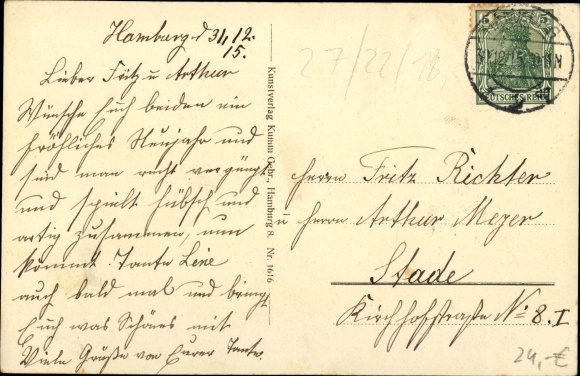 Hamburg d 31.12.
15.
Lieber Fritz u Arthur
Wünsche Euch beiden ein
fröhliches Neujahr und
seid man recht vergnügt
und spielt hübsch und
artig zusammen, nun
kommt Tante Lene
auch bald mal und bringt
Euch was Schönes mit
Viele Grüße von Eurer Tante.
27/22/18
Kunstverlag Kumm Gebr., Hamburg 8. Nr. 1616
5 5
DEUTSCHES REICH
Herrn Fritz Richter
u Herrn Arthur Meyer
Stade
Kirchhofstraße No 8. I
24,-€